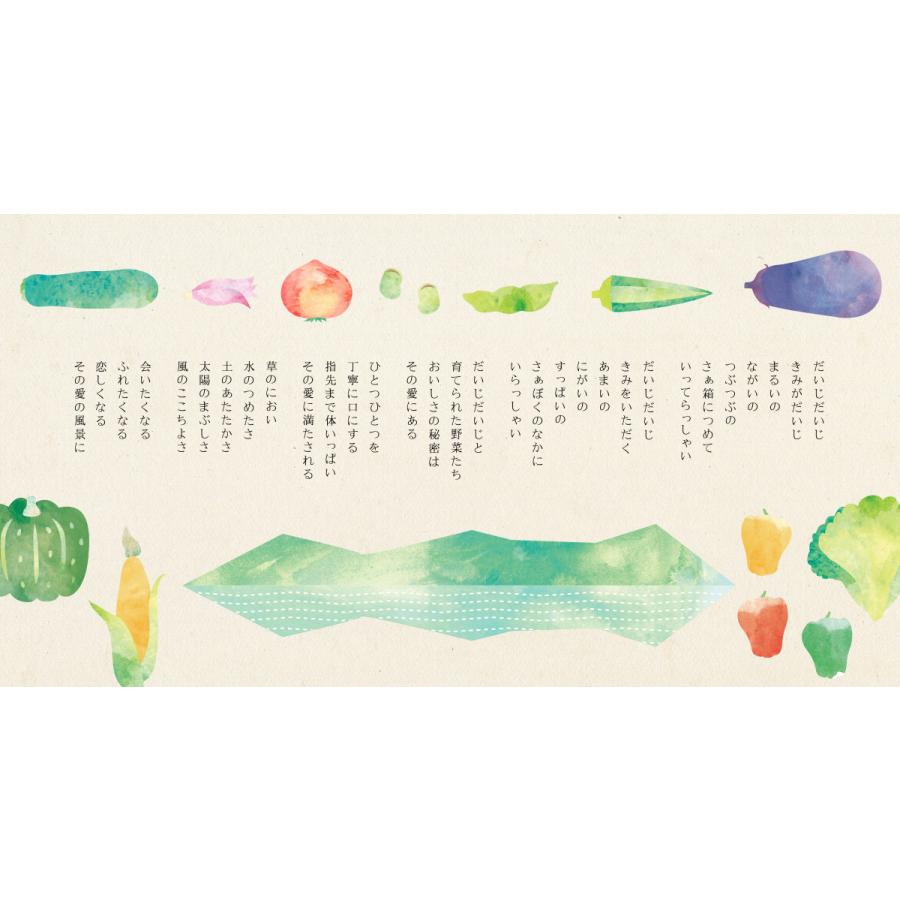 だいじだいじ
きみがだいじ
まるいの
ながいの
つぶつぶの
さぁ箱につめて
いってらっしゃい
だいじだいじ
きみをいただく
あまいの
にがいの
すっぱいの
さぁぼくのなかに
いらっしゃい
だいじだいじと
育てられた野菜たち
おいしさの秘密は
その愛にある
ひとつひとつを
丁寧に口にする
指先まで体いっぱい
その愛に満たされる
草のにおい
水のつめたさ
土のあたたかさ
太陽のまぶしさ
風のここちよさ
会いたくなる
ふれたくなる
恋しくなる
その愛の風景に